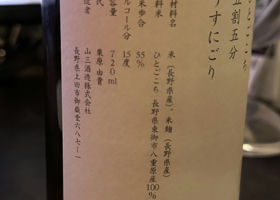 とごこち
五割五分
うすにごり
材料名 米（長野県産）、米麹（長野県産）
料米 ひとごこち 長野県東御市八重原産100%
米歩合 55%
ルコール分 15度
容量 720ml
栗原由貴
造者 山三酒造株式会社
長野県上田市御嶽堂687-1